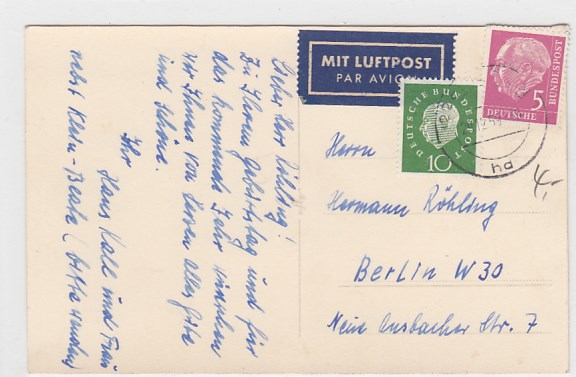 Lieber Herr Röhling!
Zu Ihrem Geburtstag und für
das kommende Jahr wünschen
wir Ihnen von Herzen alles Gute
und Schöne.
Ihr
Hans Kall und Frau
nebst Klein-Beate (bitte wenden)
MIT LUFTPOST
PAR AVION
DEUTSCHE BUNDESPOST
10
DEUTSCHE
BUNDESPOST
5
hd
4,-
Herrn
Hermann Röhling
Berlin W 30
Neue Ansbacher Str. 7